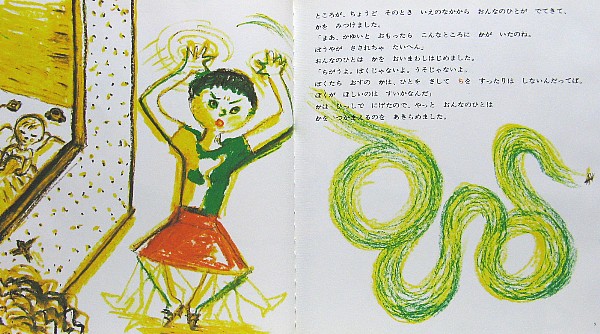 ところが、ちょうど そのとき いえのなかから おんなのひとが でてきて、
かを みつけました。
「まあ、かゆいと おもったら こんなところに かが いたのね。
ぼうやが さされちゃ たいへん」
おんなのひとは かを おいまわしはじめました。
「ちがうよ。ぼくじゃないよ。うそじゃないよ。
ぼくたち おすの かは、ひとを さして ちを すったりは しないんだってば。
ぼくが ほしいのは すいかなんだ」
かは ひっしで にげたので、やっと おんなのひとは
かを つかまえるのを あきらめました。